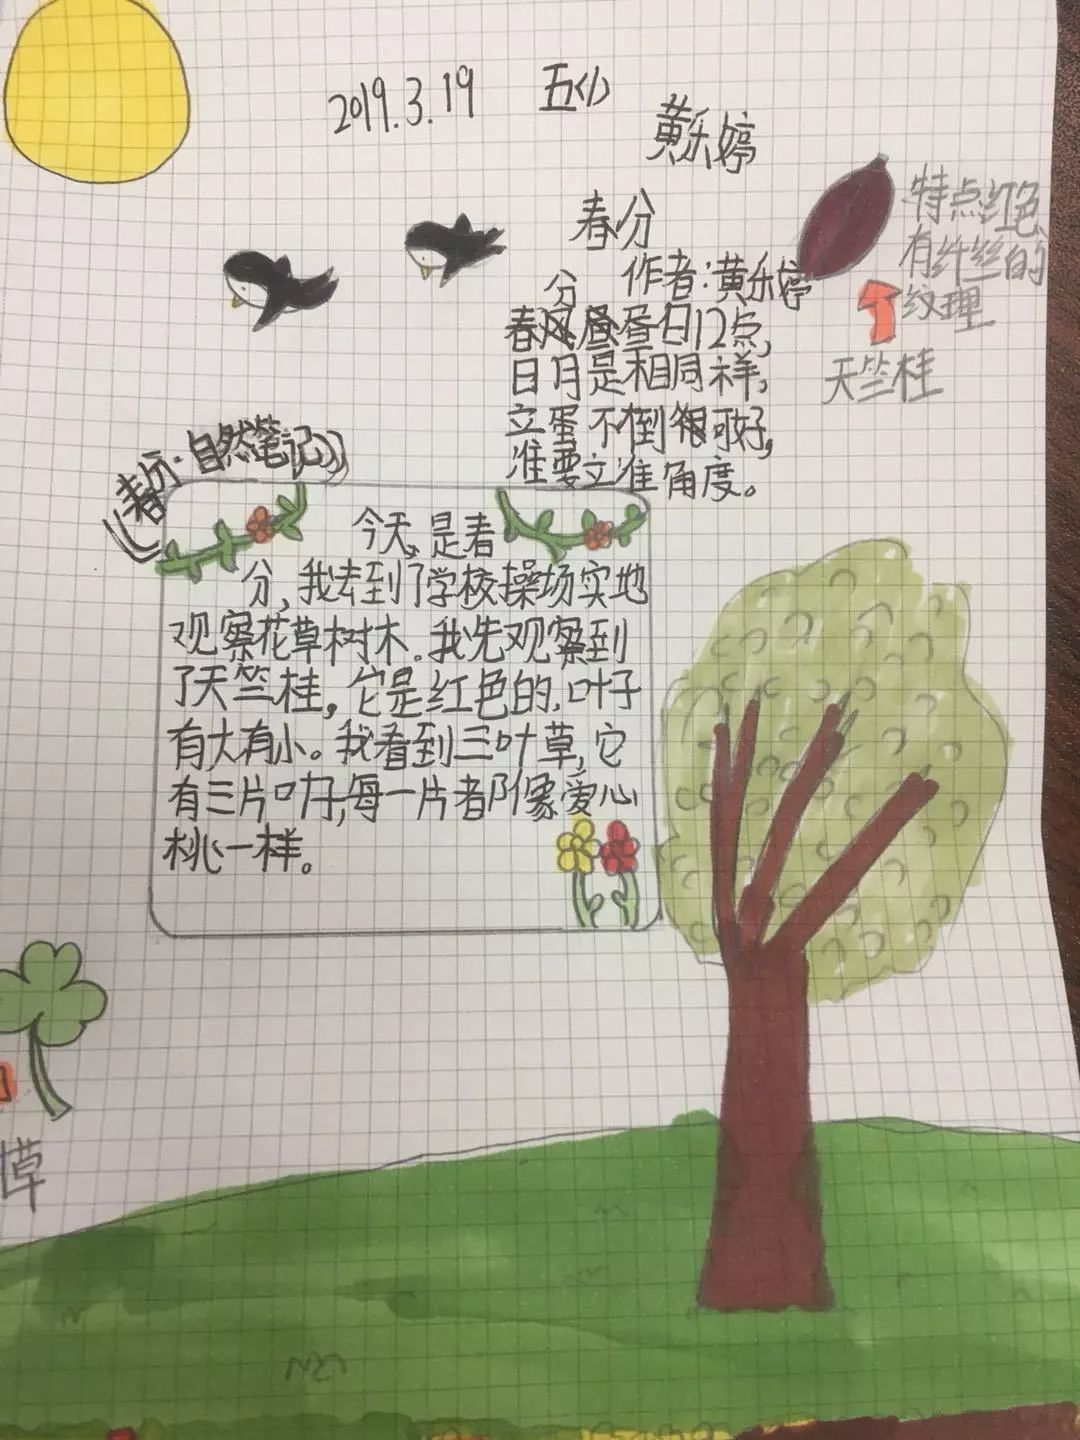 2019.3.19 五(1)
黄乐婷
春分
作者:黄乐婷
春分昼昼日12点,
日月是相同祥,
立蛋不倒很可好,
准要立准角度。
特点红色、
有纤丝的
纹理
天竺桂
《春分·自然笔记》
今天,是春
分,我去到了学校操场实地
观察花草树木.我先观察到
了天竺桂,它是红色的,叶子
有大有小。我看到三叶草,它
有三片叶子,每一片都像爱心
桃一样。
草